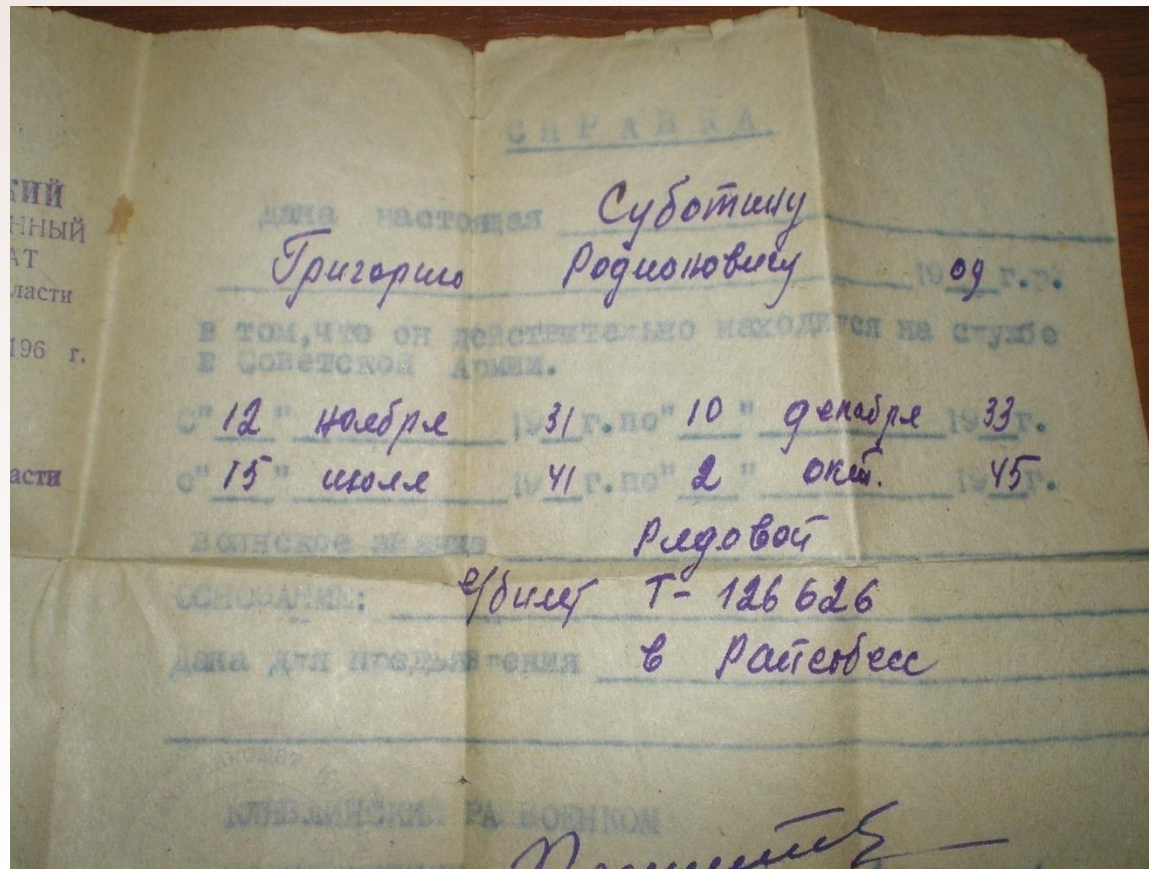 СПРАВКА
КИЙ
ННЫЙ
АТ
ласти
196 г.
асти
Дана настоящая Суботину
Григорию Родионовичу 1909 г.р.
в том, что он действительно находится на службе
в Советской Армии.
с "12" ноября 1931 г. по "10" декабря 1933 г.
с "15" июля 41 г. по "2" окт. 1945 г.
воинское звание Рядовой
ОСНОВАНИЕ: в/билет Т-126626
дана для предъявления в Райсобесс
РАЙВОЕНКОМ